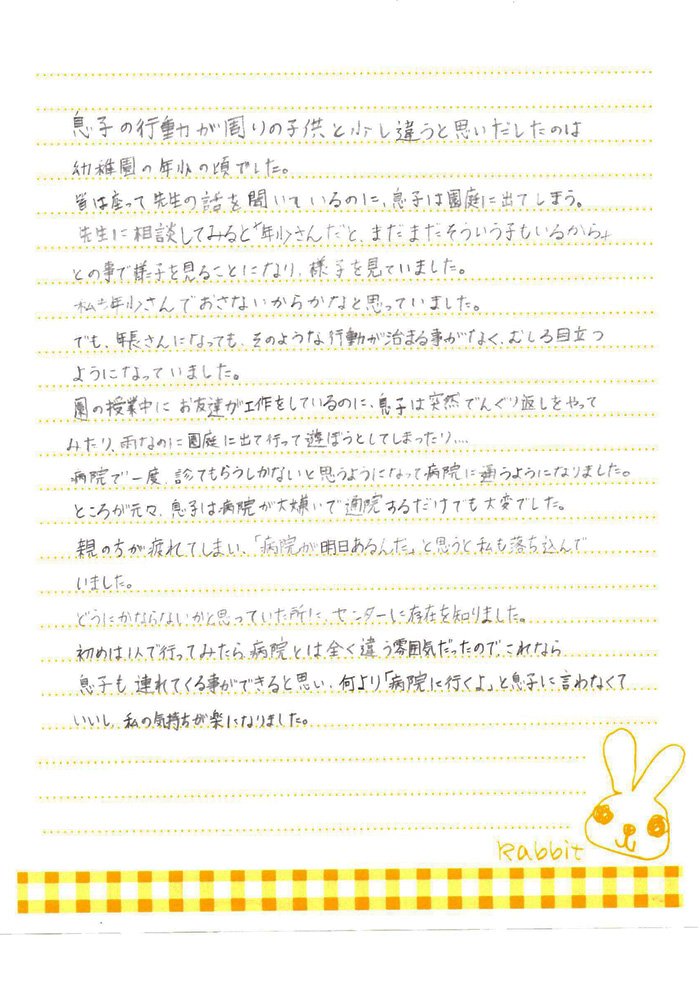 息子の行動が周りの子供と少し違うと思いだしたのは
幼稚園の年少の頃でした。
皆は座って先生の話を聞いているのに、息子は園庭に出てしまう。
先生に相談してみると「年少さんだと、まだまだそういう子もいるから」
との事で様子を見ることになり、様子を見ていました。
私も年少さんでおさないからかなと思っていました。
でも、年長さんになっても、そのような行動が治まる事がなく、むしろ目立つ
ようになっていました。
園の授業中に お友達が工作をしているのに、息子は突然でんぐり返しをやって
みたり、雨なのに園庭に出て行って遊ぼうとしてしまったり....
病院で一度、診てもらうしかないと思うようになって病院に通うようになりました。
ところが元々、息子は病院が大嫌いで通院するだけでも大変でした。
親の方が疲れてしまい、「病院が明日あるんだ」と思うと私も落ち込んで
いました。
どうにかならないかと思っていた所に、センターに存在を知りました。
初めは1人で行ってみたら、病院とは全く違う雰囲気だったので、これなら
息子も連れてくる事ができると思い、何より「病院に行くよ」と息子に言わなくて
いいし、私の気持ちが楽になりました。
Rabbit